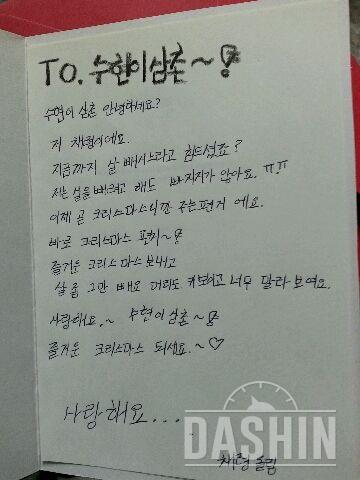 TO. 수현이삼촌~!
수현이 삼촌 안녕하세요?
저 채령이에요.
지금까지 살 빼시느라고 힘드셨죠?
저는 살을 빼려고 해도 빠지지가 않아요. ㅠㅠ
이제 곧 크리스마스니깐 주는편지 에요.
바로 크리스마스 편지~!
즐거운 크리스마스 보내고
살 좀 그만 빼요
너무 달라 보여요.
사랑해요.~ 수현이 삼촌~!
즐거운 크리스마스 되세요.~♡
사랑해요...
채령 올림
DASHIN